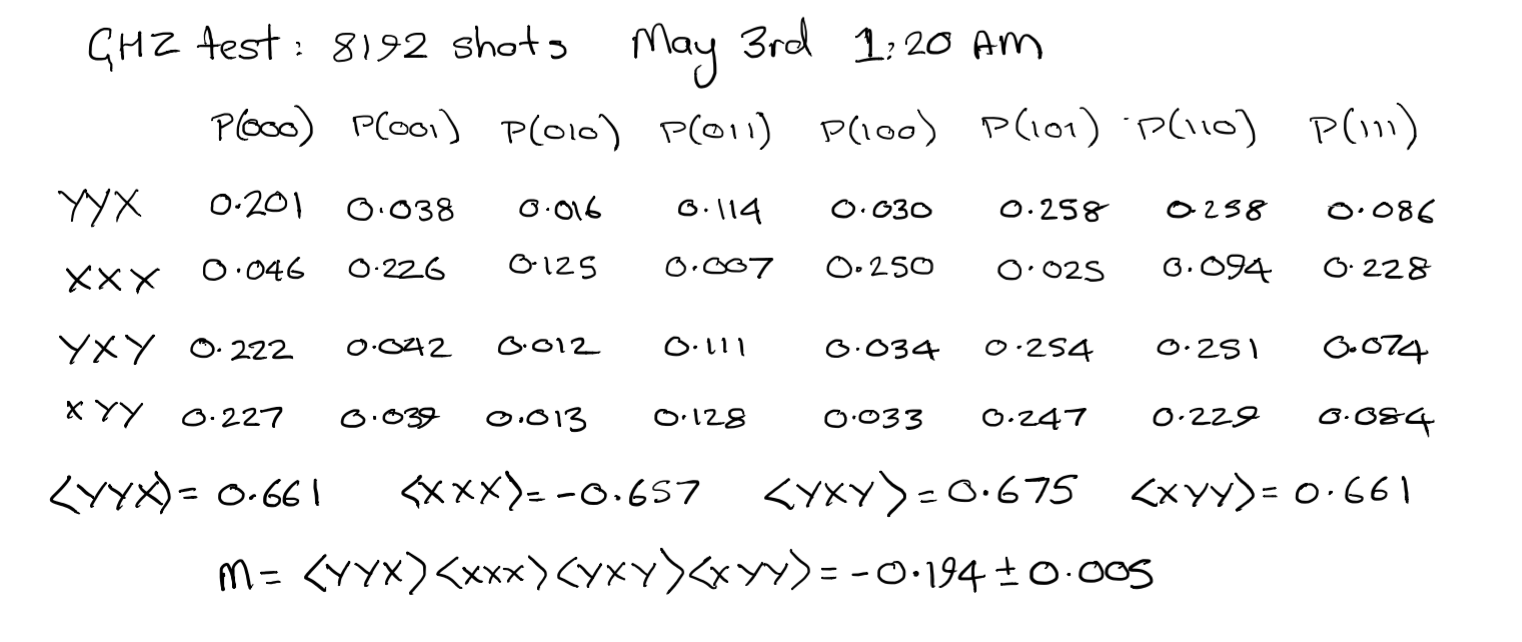 GHZ test: 8192 shots May 3rd 1:20 AM
P(000) P(001) P(010) P(011) P(100) P(101) P(110) P(111)
YYX 0.201 0.038 0.016 0.114 0.030 0.258 0.258 0.086
XXX 0.046 0.226 0.125 0.007 0.250 0.025 0.094 0.228
YXY 0.222 0.042 0.012 0.111 0.034 0.254 0.251 0.074
XYY 0.227 0.039 0.013 0.128 0.033 0.247 0.229 0.084
<YYX>= 0.661 <XXX>= -0.657 <YXY>=0.675 <XYY>= 0.661
M= <YYX><XXX><YXY><XYY>= -0.194 ± 0.005